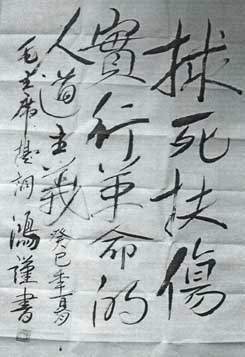 救死扶傷
實行革命的
人道主義
癸巳年夏
毛主席題詞 鴻謹書